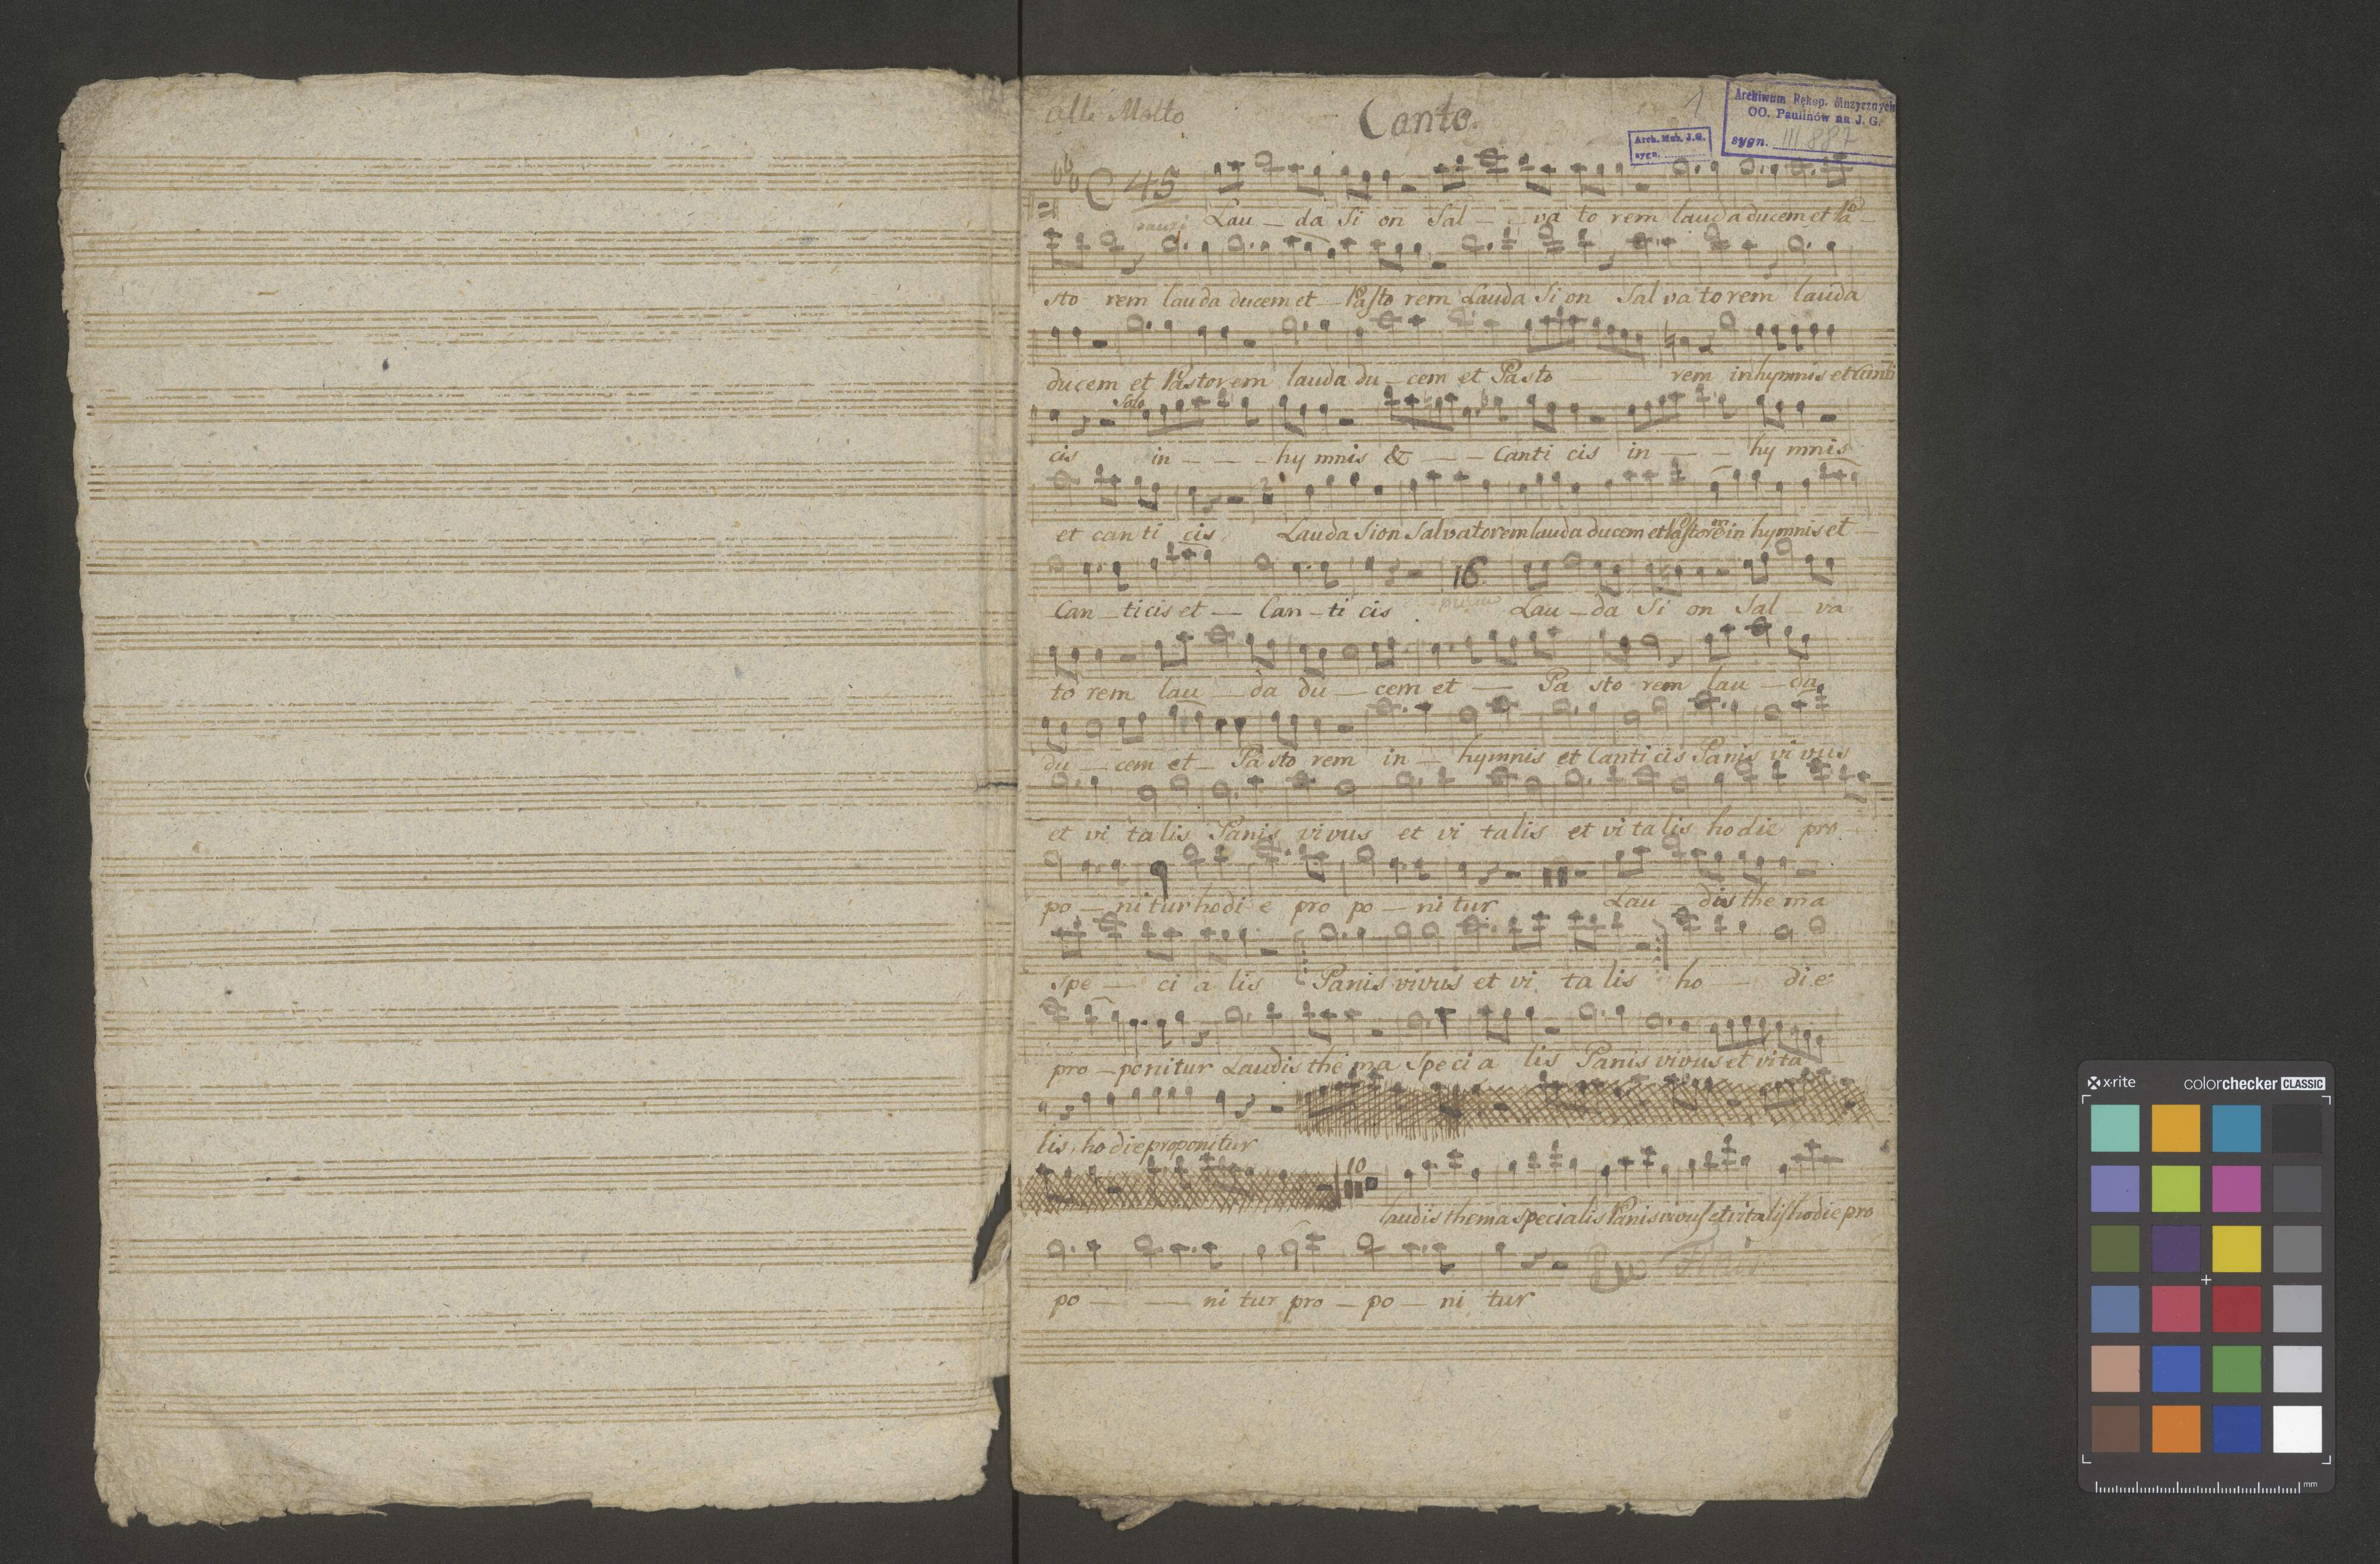 Allo Molto
Canto.
1
Archiwum Rękop. Muzycznych
OO. Paulinów na J. G.
sygn. III 887
Arch. Muz. J.G.
sygn.
45
Lau - da Si on Sal - va to rem lauda ducem et Pa -
sto rem lauda ducem et - Pasto rem Lauda Si on Sal va torem lauda
ducem et Pastorem lauda du - cem et Pasto rem in hymnis et Canti
Solo
cis in - - - hy mnis & - - Canti cis in - - - hy mnis
2
et can ti cis Lauda Sion Salvatorem lauda ducem et Pastorem in hymnis et -
16
Can - ticis et - Can - ti cis Lau - da Si on Sal - va
to rem lau - da du - cem et - Pa sto rem lau - da
du - cem et - Pa sto rem in - hymnis et Canti cis Panis vi vus
et vi talis Panis vivus et vi talis et vi talis hodie pro
po - nitur hodi e pro po - ni tur Lau - dis the ma
Spe - ci a lis Panis vivus et vi ta lis ho - die
pro - ponitur Laudis the ma Speci a lis Panis vivus et vita
lis, ho die proponitur
10
laudis thema specialis Panis vivus et vitalis hodie pro
po - - ni tur pro - po - ni tur
x-rite
colorchecker CLASSIC
mm